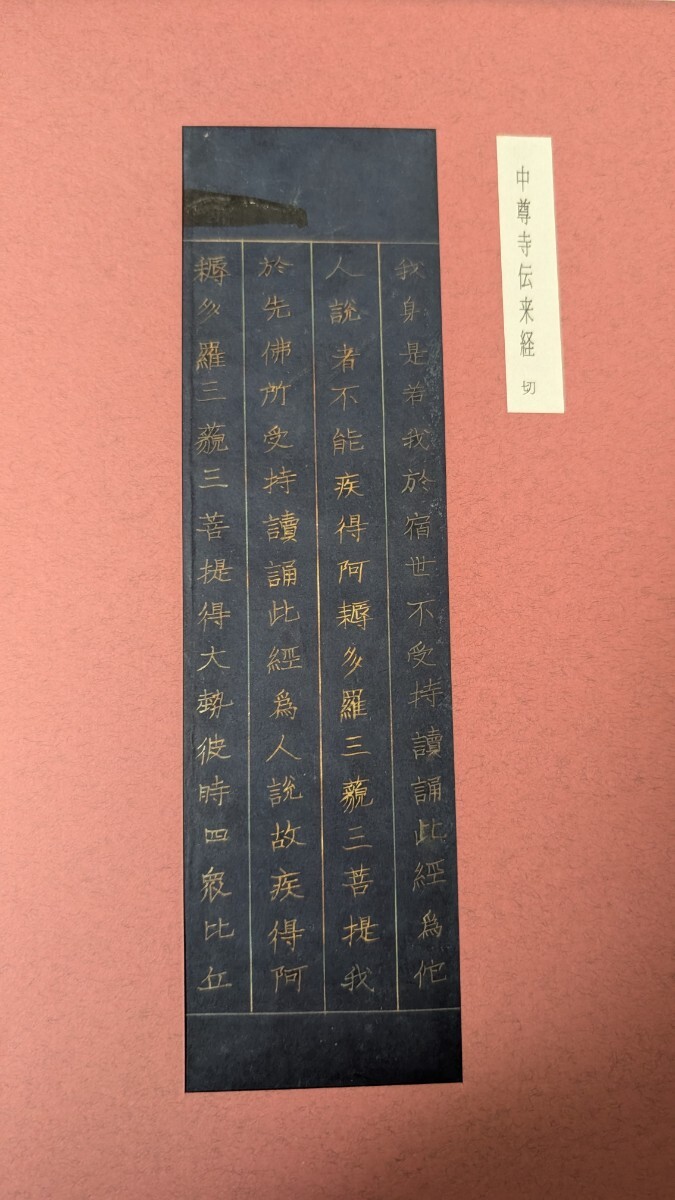 中尊寺伝来経 切
我身是若我於宿世不受持讀誦此經爲佗
人說者不能疾得阿耨多羅三藐三菩提我
於先佛所受持讀誦此經爲人說故疾得阿
耨多羅三藐三菩提得大勢彼時四衆比丘